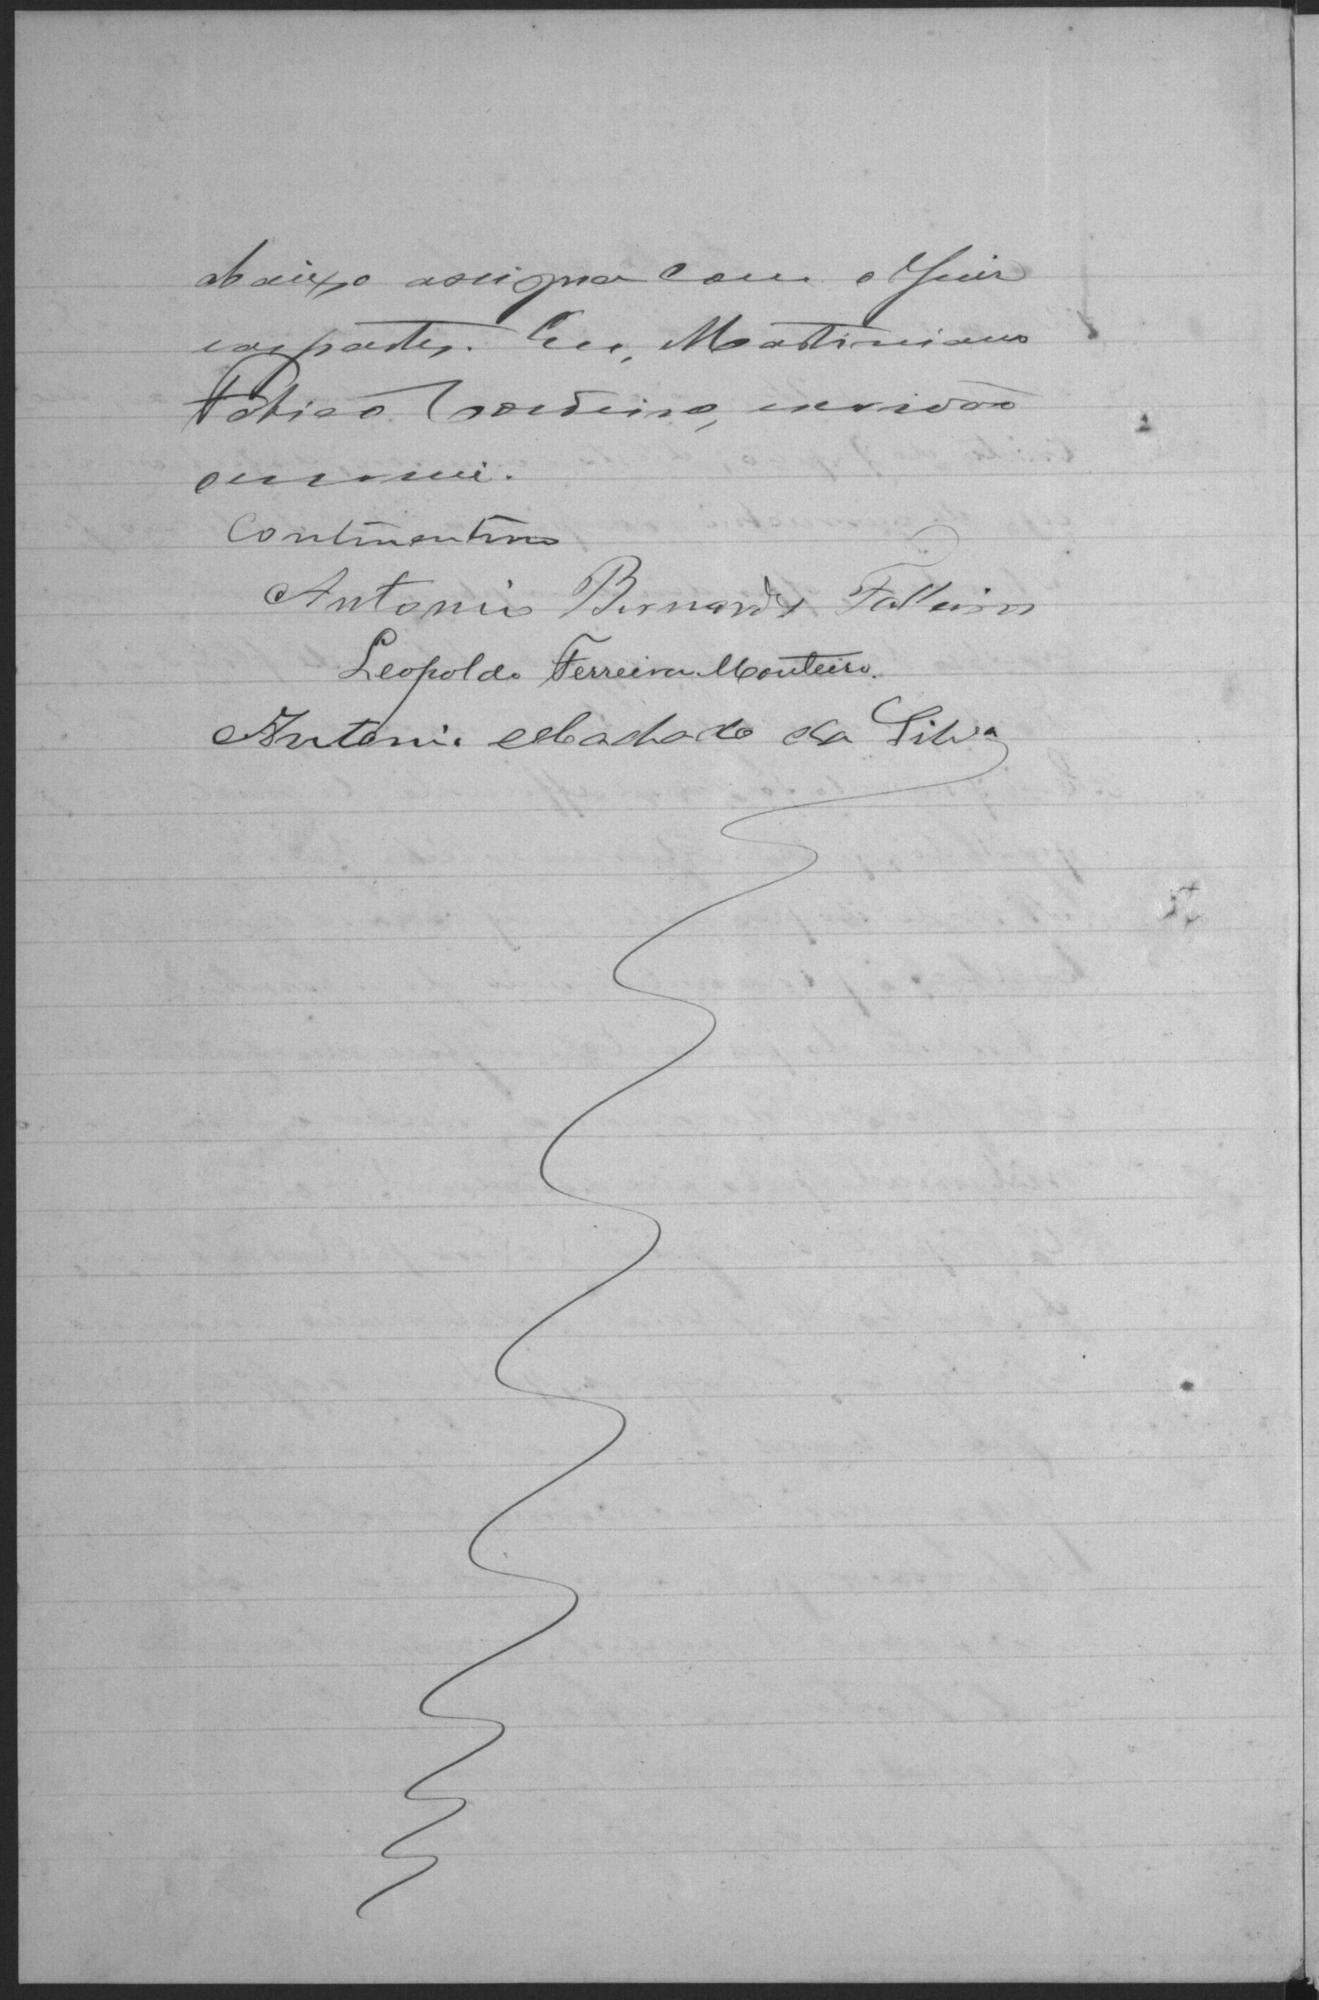 abaixo assigna com o Juiz
e as partes. Eu, Martiniano
Cordeiro, escrivão
escrevi.
Continentino
Antonio Bernardes Falleiros
Leopoldo Ferreira Monteiro.
Antonio Machado da Silva